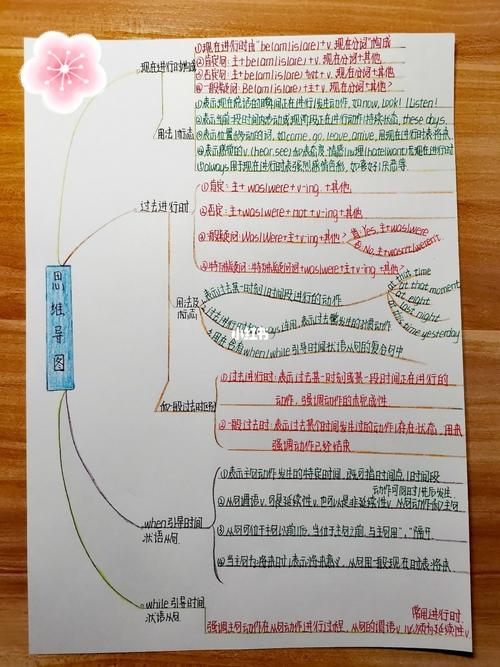 思维导图
现在进行时构成
①现在进行时由"be(am|is|are)+v.现在分词"构成
②肯定句:主+be(am|is|are)+v.现在分词+其他
③否定句:主+be(am|is|are)+not+v.现在分词+其他
④一般疑问:Be(am|is|are)+主+v.现在分词+其他?
用法|标志
①表示现在说话的瞬间正在进行|发生动作,如now, look! listen!
②表示当前一段时间内的动作或现阶段正在进行动作|持续状态, these days.
③表示位置移动的词,如come, go, leave, arrive,用现在进行时表将来
④表示感觉的v.(hear, see)和表态度
⑤always用于现在进行时表强烈感情色彩,如
过去进行时
①肯定:主+was|were+v-ing+其他
②否定:主+was|were+not+v-ing+其他
③一般疑问:Was|Were+主+v-ing+其他?
肯:Yes,主+was|were
否:No,主+wasn't|weren't
④特殊疑问:特殊疑问词+was|were+主+v-ing+其他?
用法及标志
1.表示过去某一时刻|时间段进行的动作
at this time
at that moment
at eight
last night
this time yesterday
小红书
when|while引导时间状语从句的复合句中
和一般过去时区别
①过去进行时:表示过去某一时刻或某一段时间正在进行的
动作,强调动作的未完成性
②一般过去时:表示过去某个时间发生过的动作|存在状态,用来
强调动作已经结束
when引导时间
状语从句
①表示主句动作发生的特定时间,既可指时间点|时间段
动作可同时|先后发生
②从句谓语v.可是延续性v.也可以是非延续性v.
③从句可位于主句以前|下,当位于主句之前,与主句用","隔开
④当主句为将来时|表示将来意义,从句用一般现在时表将来
while引导时间
状语从句
常用进行时.
强调主句动作在从句动作进行过程,从句的谓语v.必须为延续性v